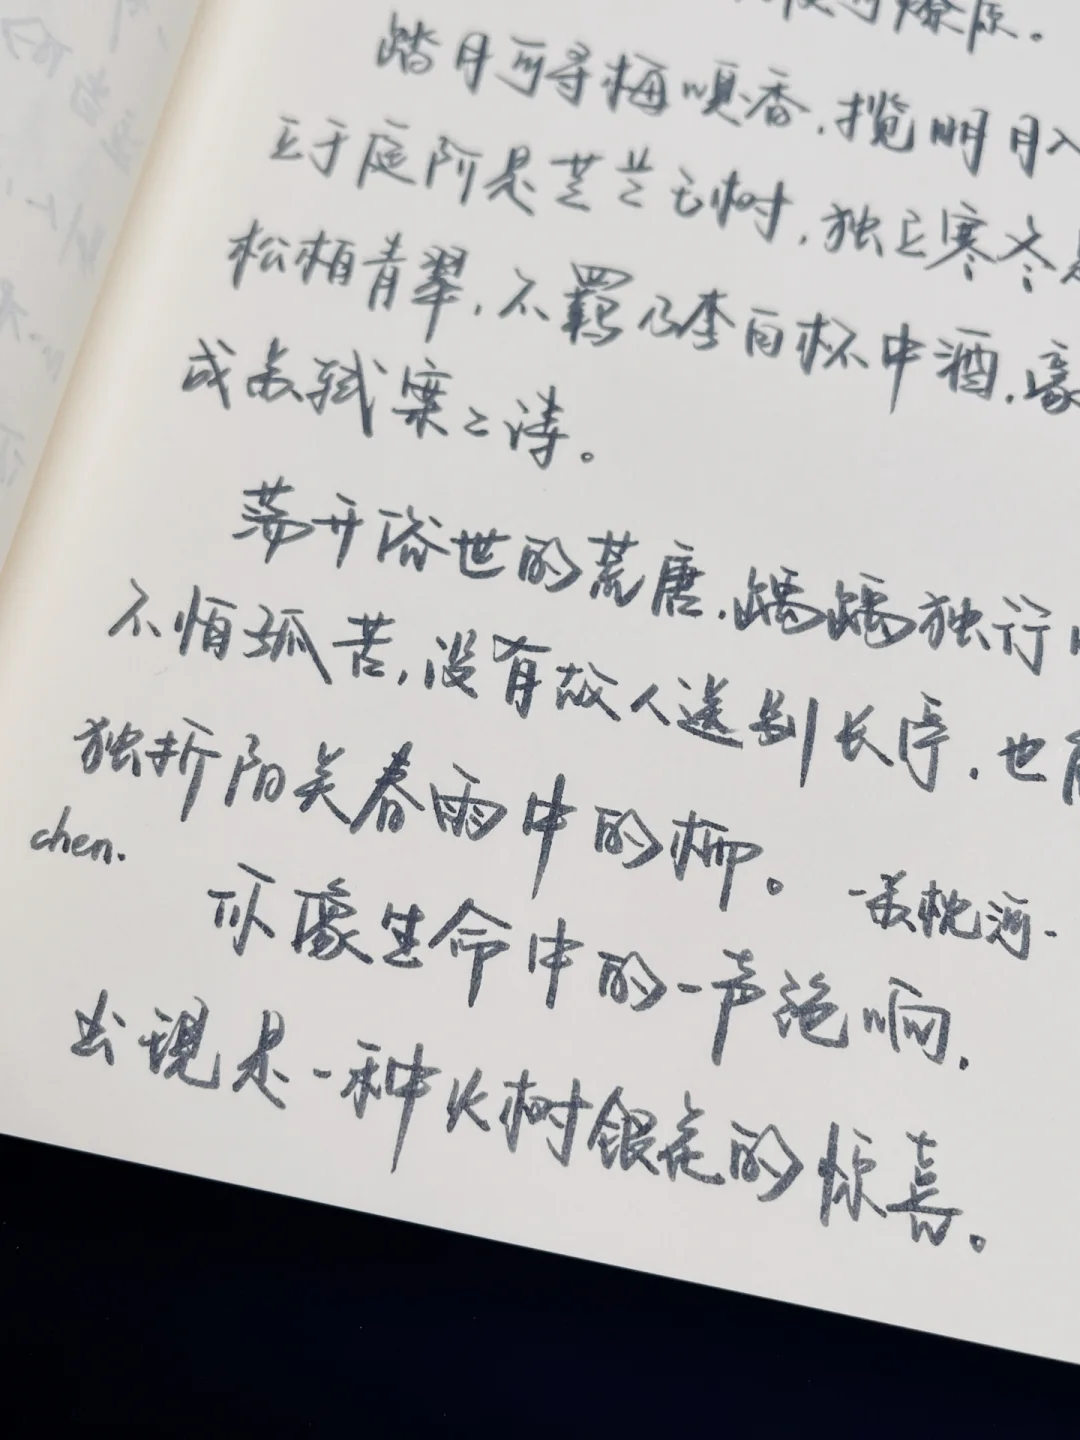 燎原。
踏月可寻梅嗅香，揽明月入
立于庭阶是芝兰玉树，独立寒冬是
松柏青翠，不羁乃李白杯中酒，豪
成苏轼案上涛。
荡开俗世的荒唐，踽踽独行
不怕孤苦，没有故人送别长亭，也能
独折阳关春雨中的柳。
chen.
一苏枕河.
你像生命中的一声绝响，
出现是一种火树银花的惊喜。